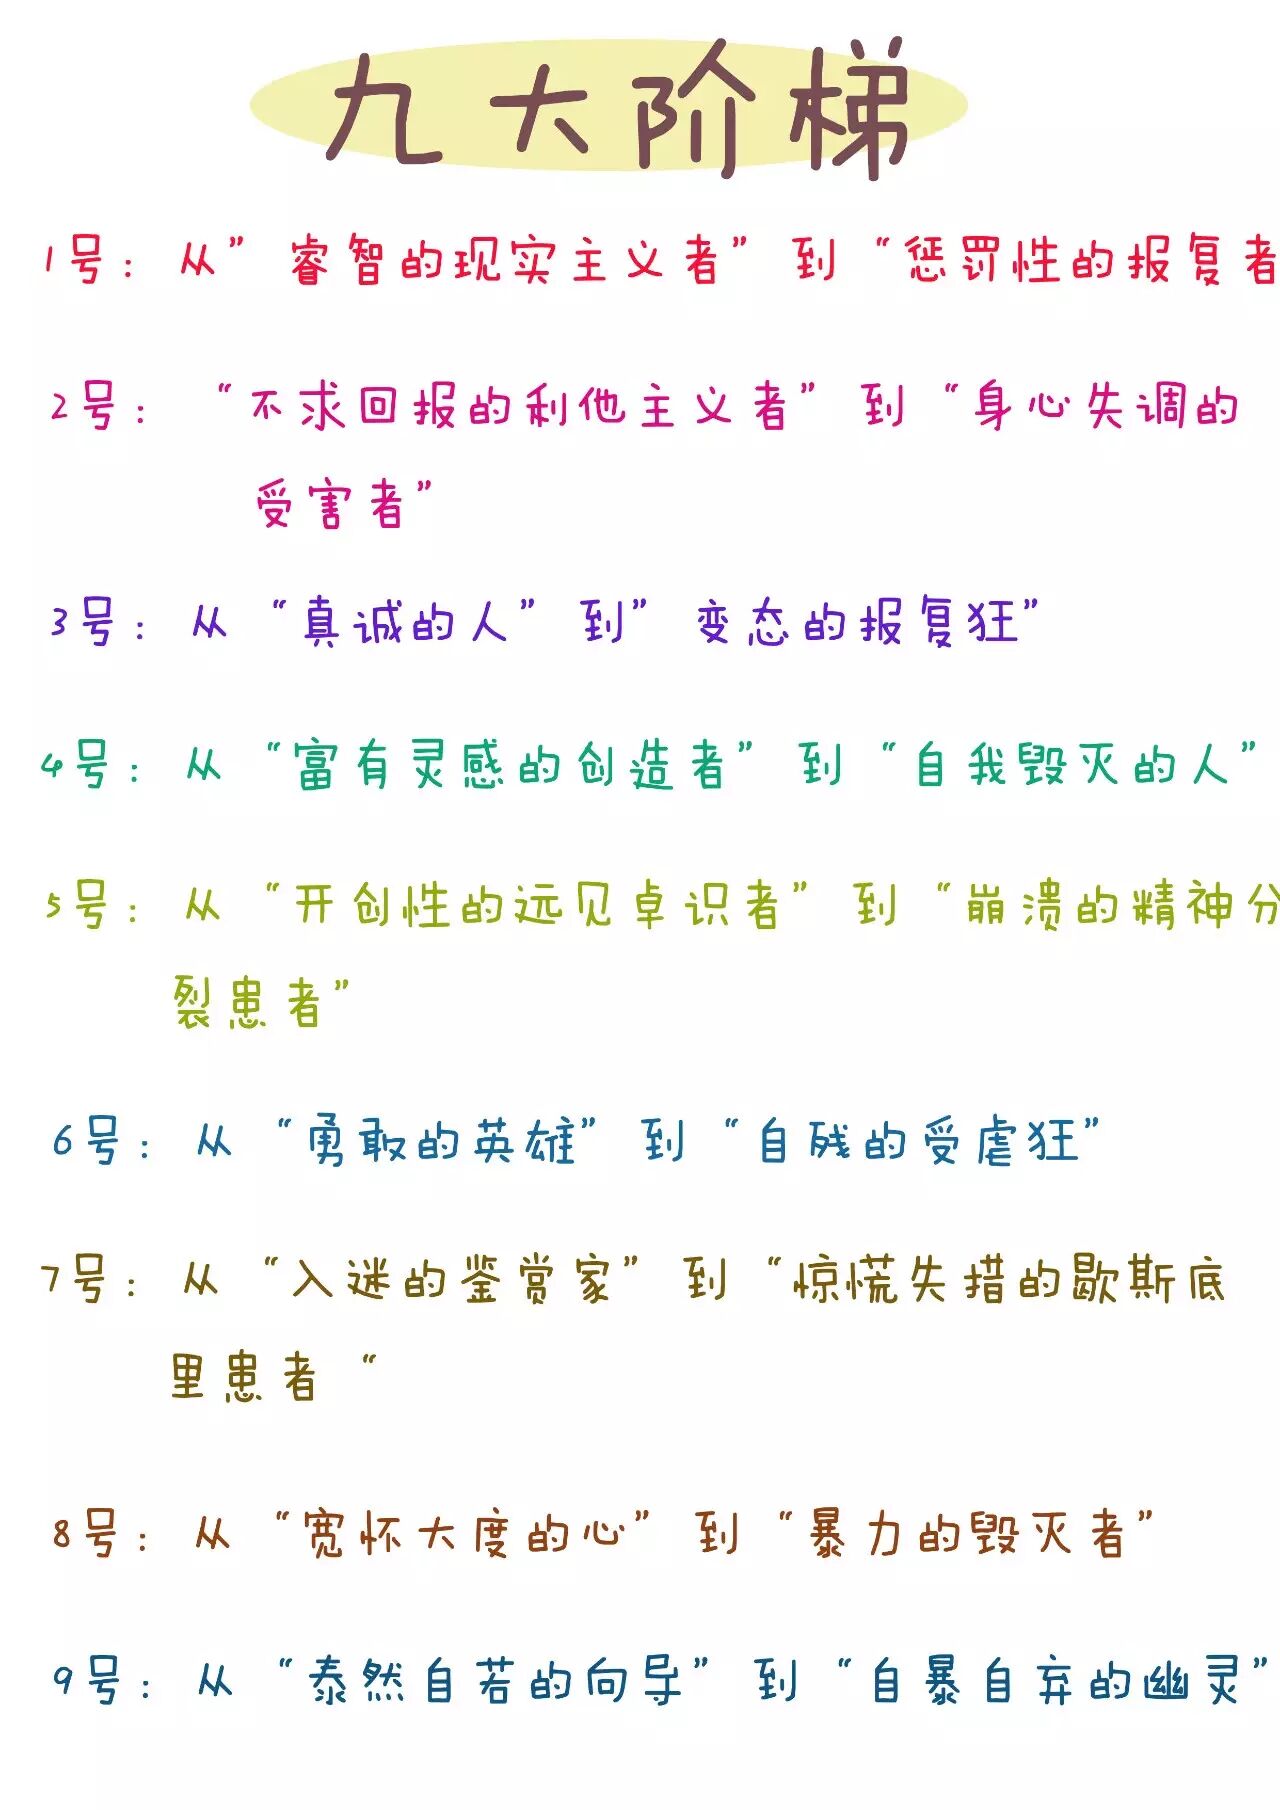 九大阶梯
1号：从”睿智的现实主义者”到“惩罚性的报复者
2号：“不求回报的利他主义者”到“身心失调的
受害者”
3号：从“真诚的人”到”变态的报复狂”
4号：从“富有灵感的创造者”到“自我毁灭的人”
5号：从“开创性的远见卓识者”到“崩溃的精神分
裂患者”
6号：从“勇敢的英雄”到“自残的受虐狂”
7号：从“入迷的鉴赏家”到“惊慌失措的歇斯底
里患者“
8号：从“宽怀大度的心”到“暴力的毁灭者”
9号：从“泰然自若的向导”到“自暴自弃的幽灵”